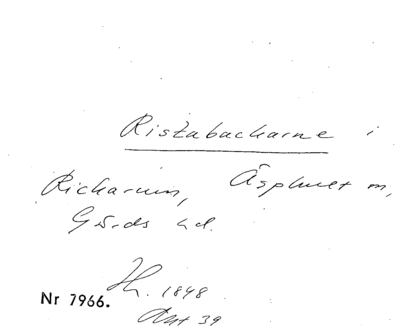 Ristabackarne i
Rickarum, Äsphult m,
Gärds hd.
Hz. 1848
Nr 7966.
Akt 39